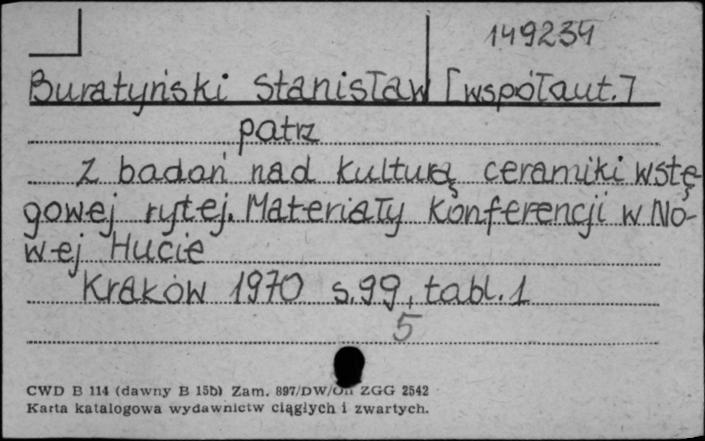 149234
Buratyński Stanisław [współaut.]
patrz
Z badań nad kulturą ceramiki wstę-
gowej rytej. Materiały Konferencji w No-
wej Hucie
Kraków 1970 s. 99, tabl. 1
5
CWD B 114 (dawny B 15b) Zam. 897/DW/Oń ZGG 2542
Karta katalogowa wydawnictw ciągłych i zwartych.